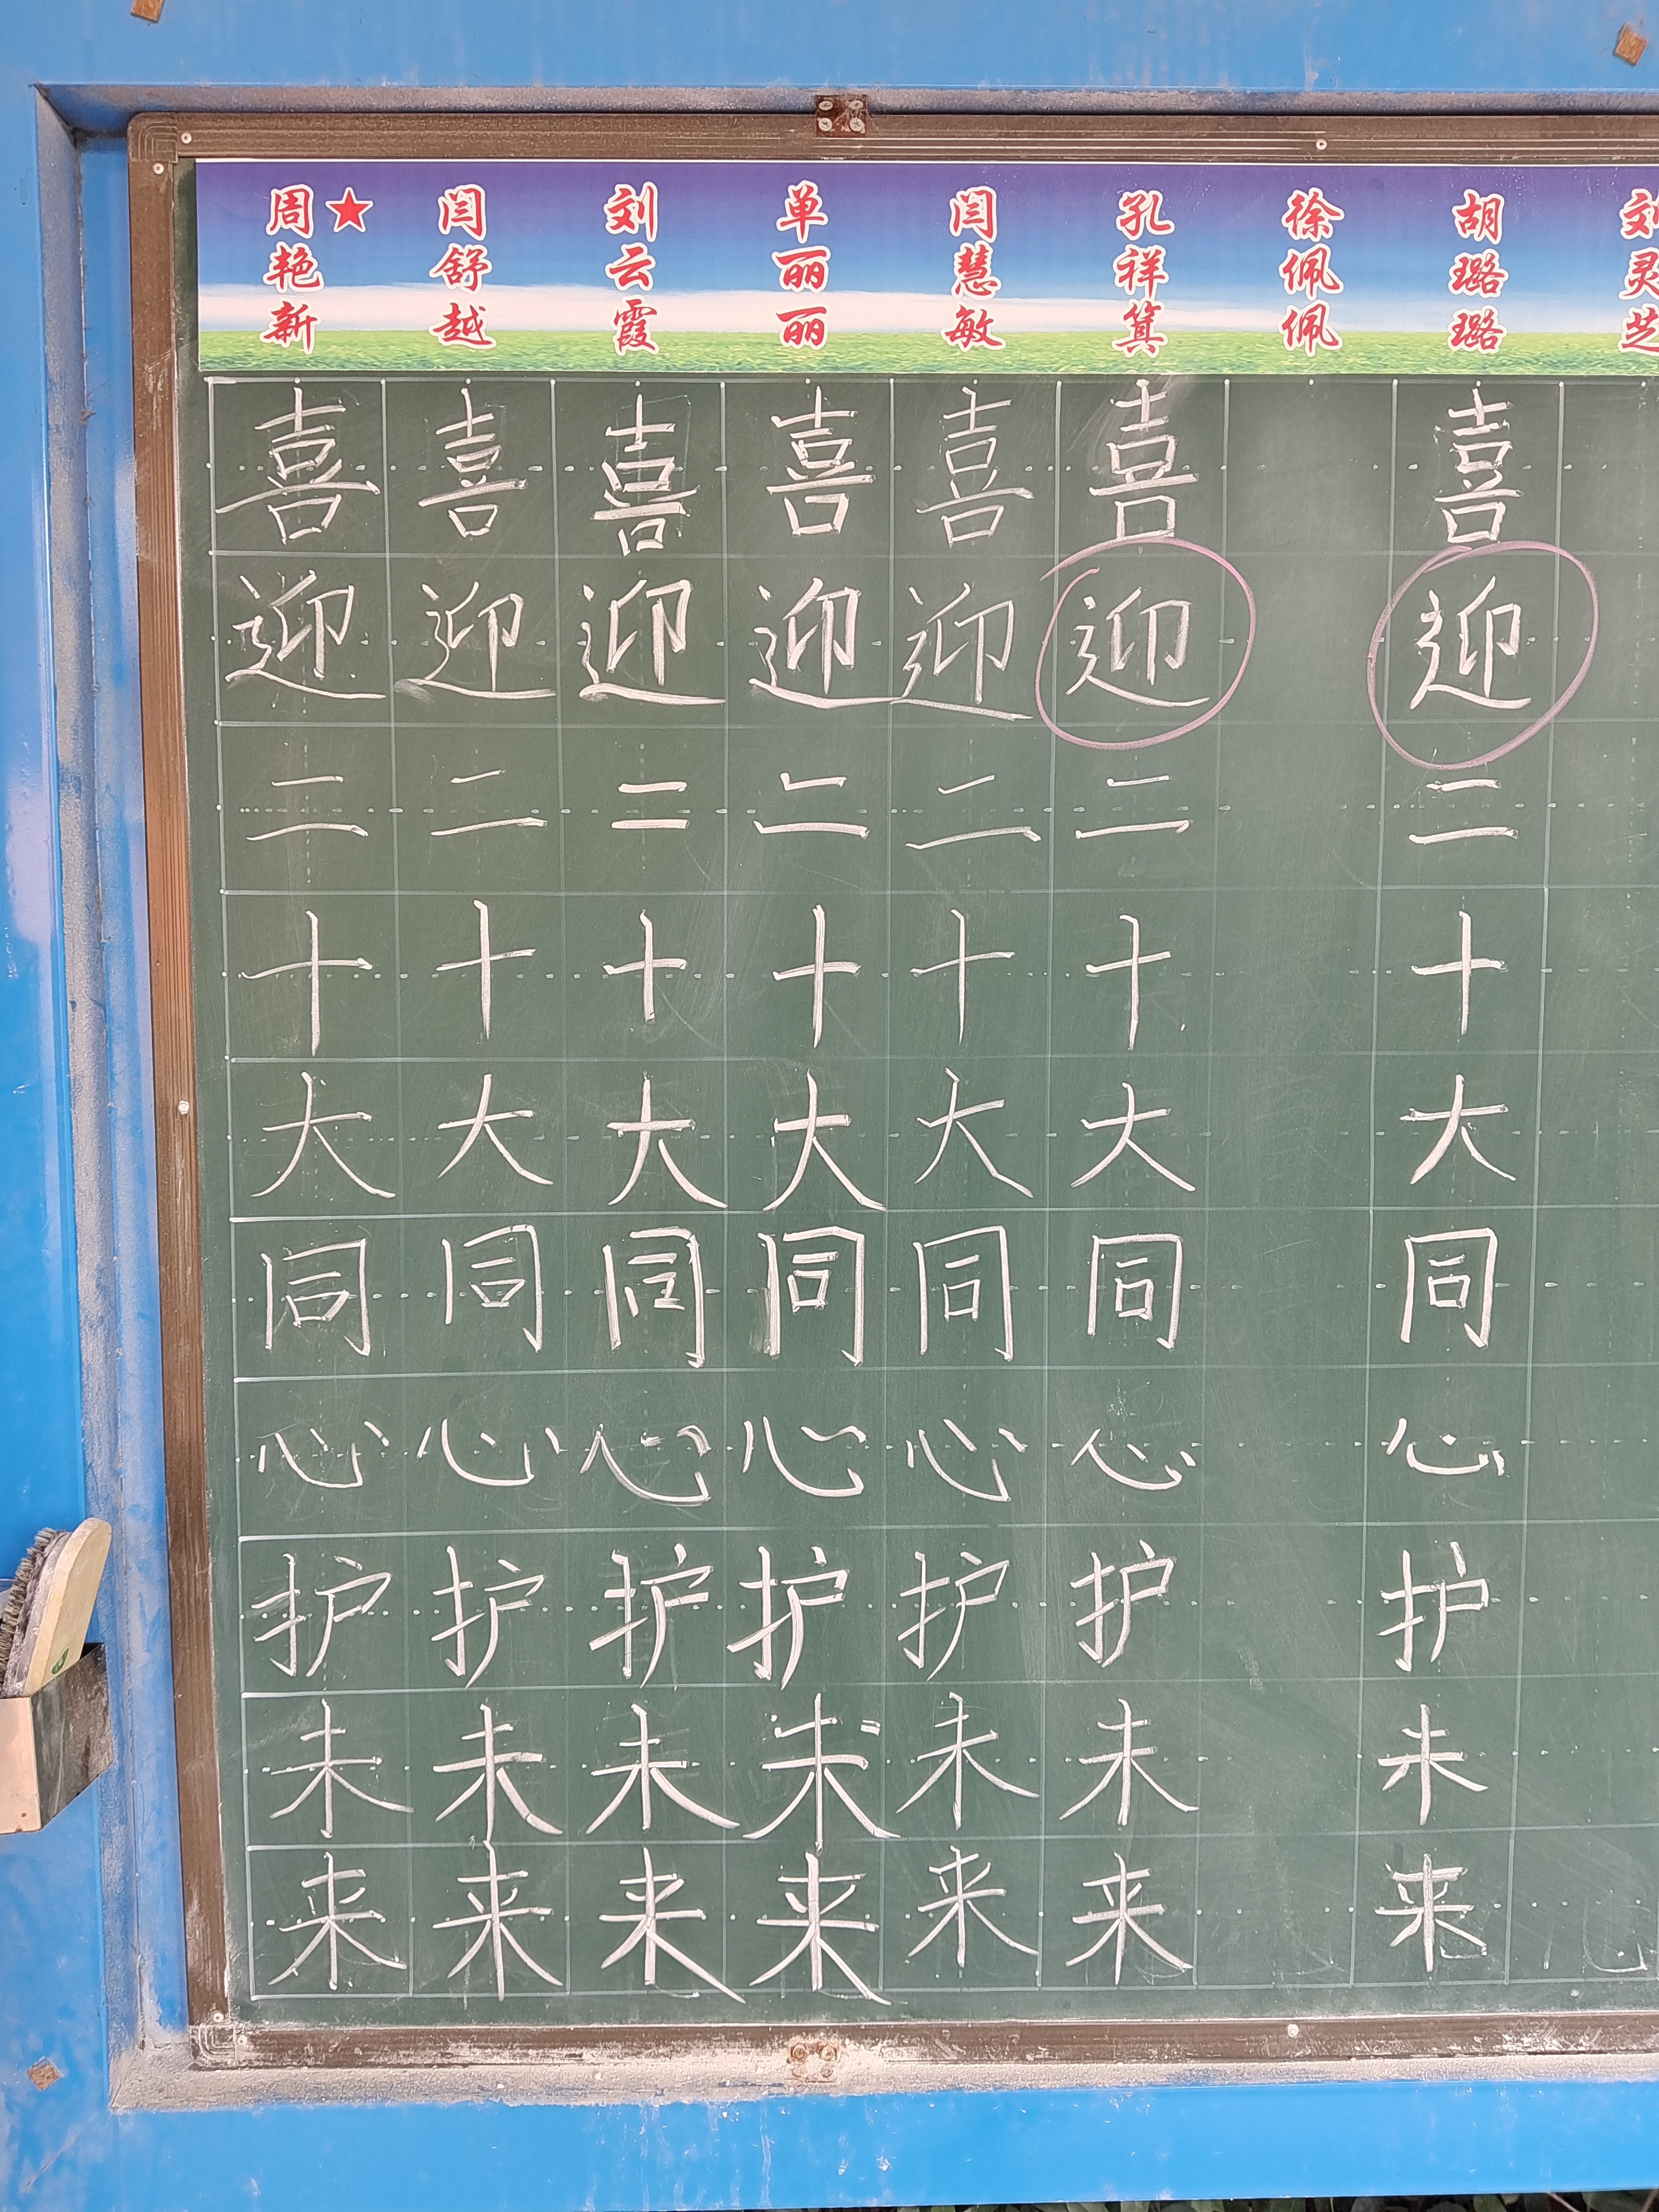 周艳新★ 闫舒越 刘云霞 单丽丽 闫慧敏 孔祥箕 徐佩佩 胡璐璐 刘灵芝
喜 喜 喜 喜 喜 喜 喜
迎 迎 迎 迎 迎 迎 迎
二 二 二 二 二 二 二
十 十 十 十 十 十 十
大 大 大 大 大 大 大
同 同 同 同 同 同 同
心 心 心 心 心 心 心
护 护 护 护 护 护 护
未 未 未 未 未 未 未
来 来 来 来 来 来 来